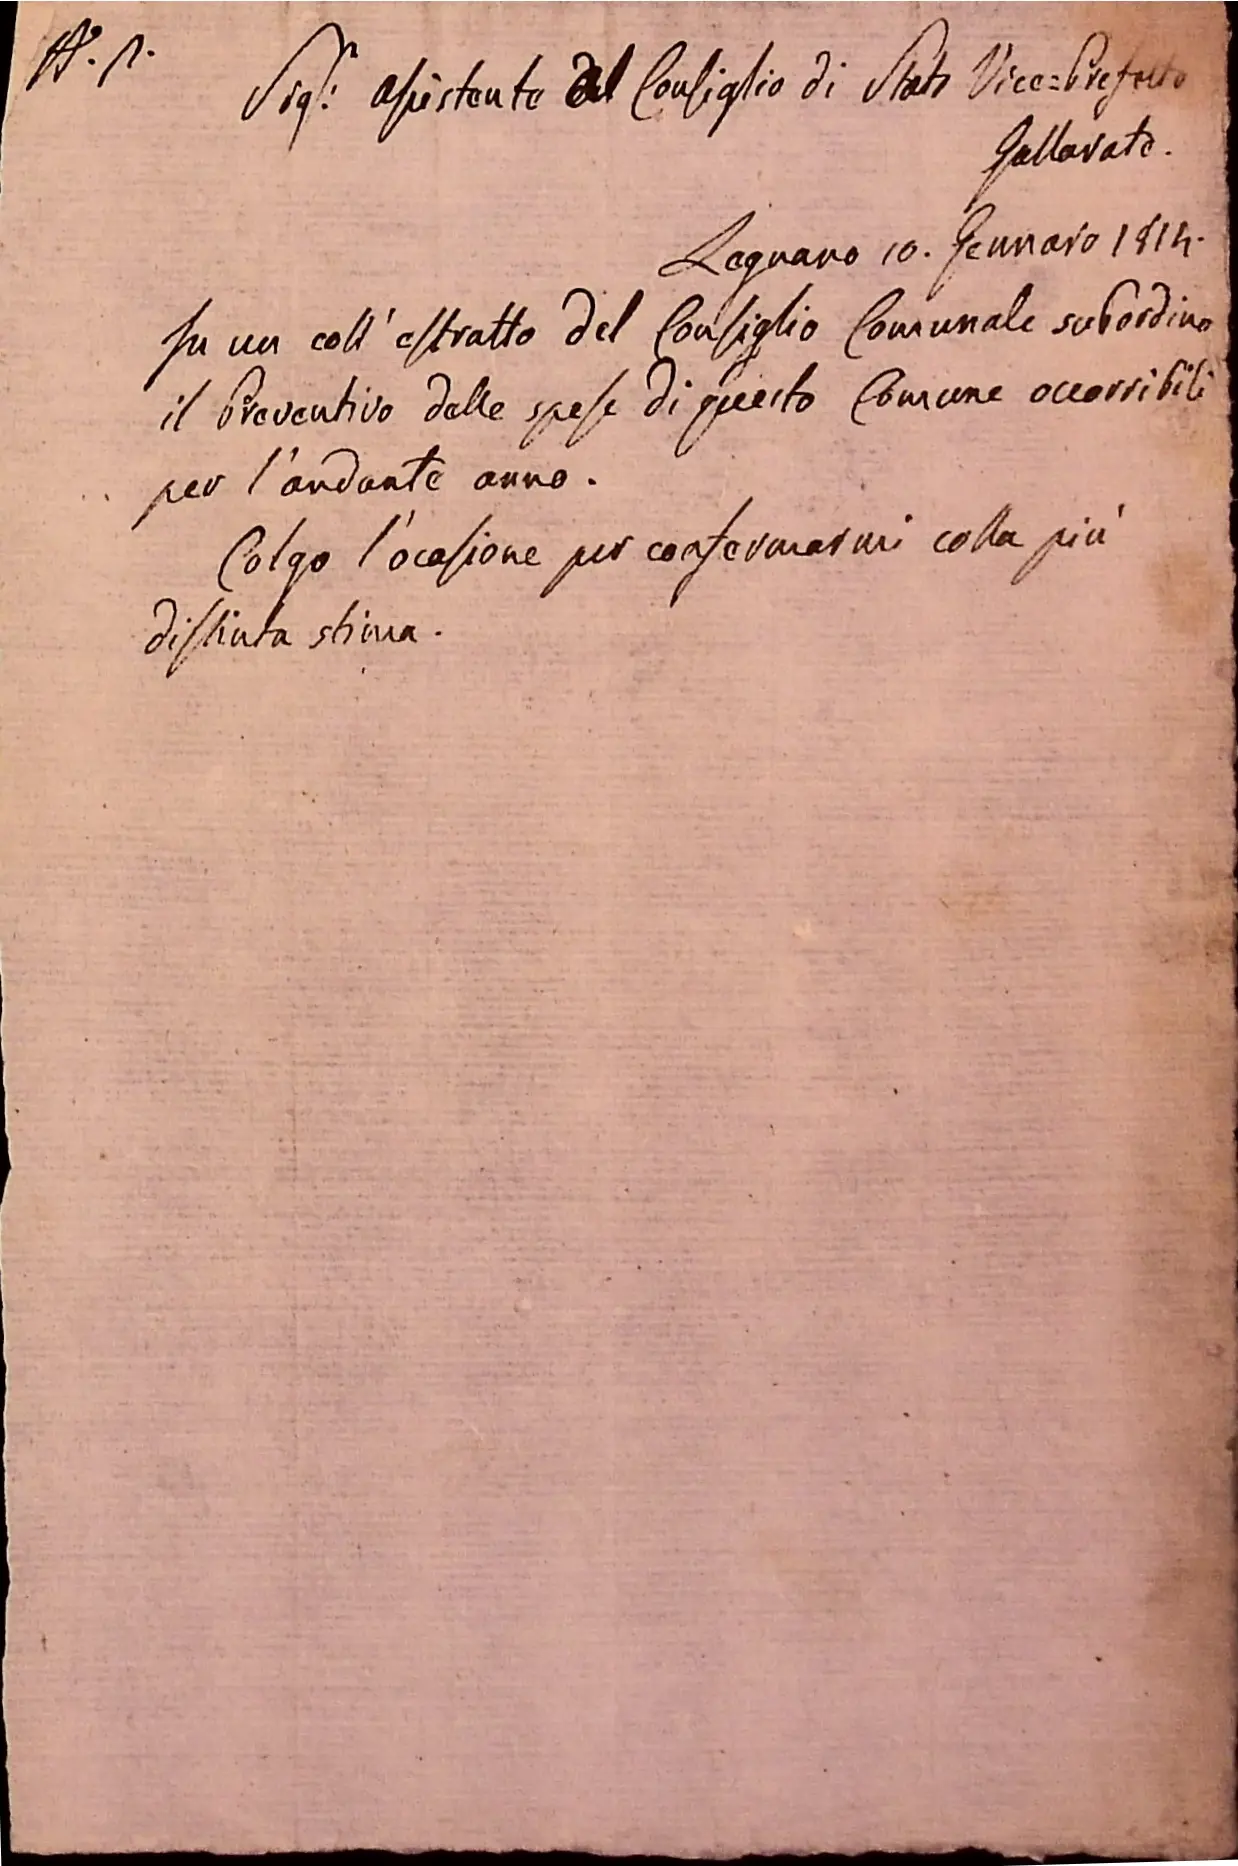 N.° 1.
Sig.r Assistente al Consiglio di Stato Vice=Prefetto
Gallarate.
Legnano 10. Gennaro 1814.
In un coll'estratto del Consiglio Comunale subordino
il Preventivo delle spese di questo Comune occorribili
per l'andante anno.
Colgo l'ocasione per confermarmi colla più
distinta stima.